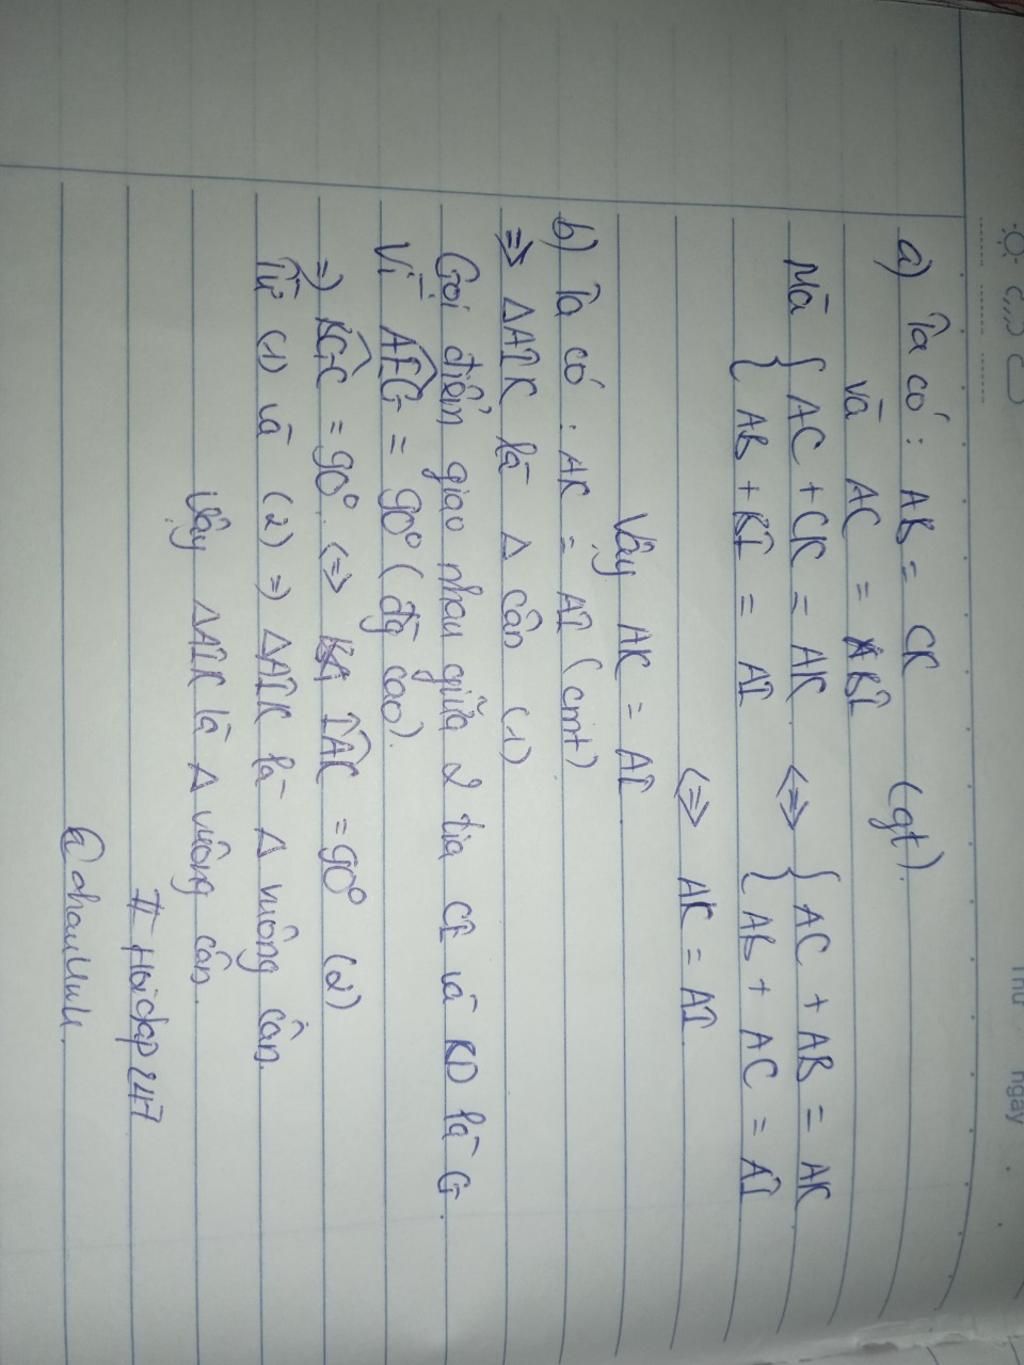 Thứ ngày
a) Ta có: AB = CK (gt).
và AC = BI
Mà { AC + CK = AK <=> { AC + AB = AK
{ AB + BI = AI { AB + AC = AI
<=> AK = AI
Vậy AK = AI
b) Ta có: AK = AI (cmt)
=> ΔAIK là Δ cân (1)
Gọi điểm giao nhau giữa 2 tia CF và KD là G.
Vì = 90° (đg cao).
=> = 90° <=> IAK = 90° (2)
Từ (1) và (2) => ΔAIK là Δ vuông cân.
Vậy ΔAIK là Δ vuông cân.
# Hoidap247